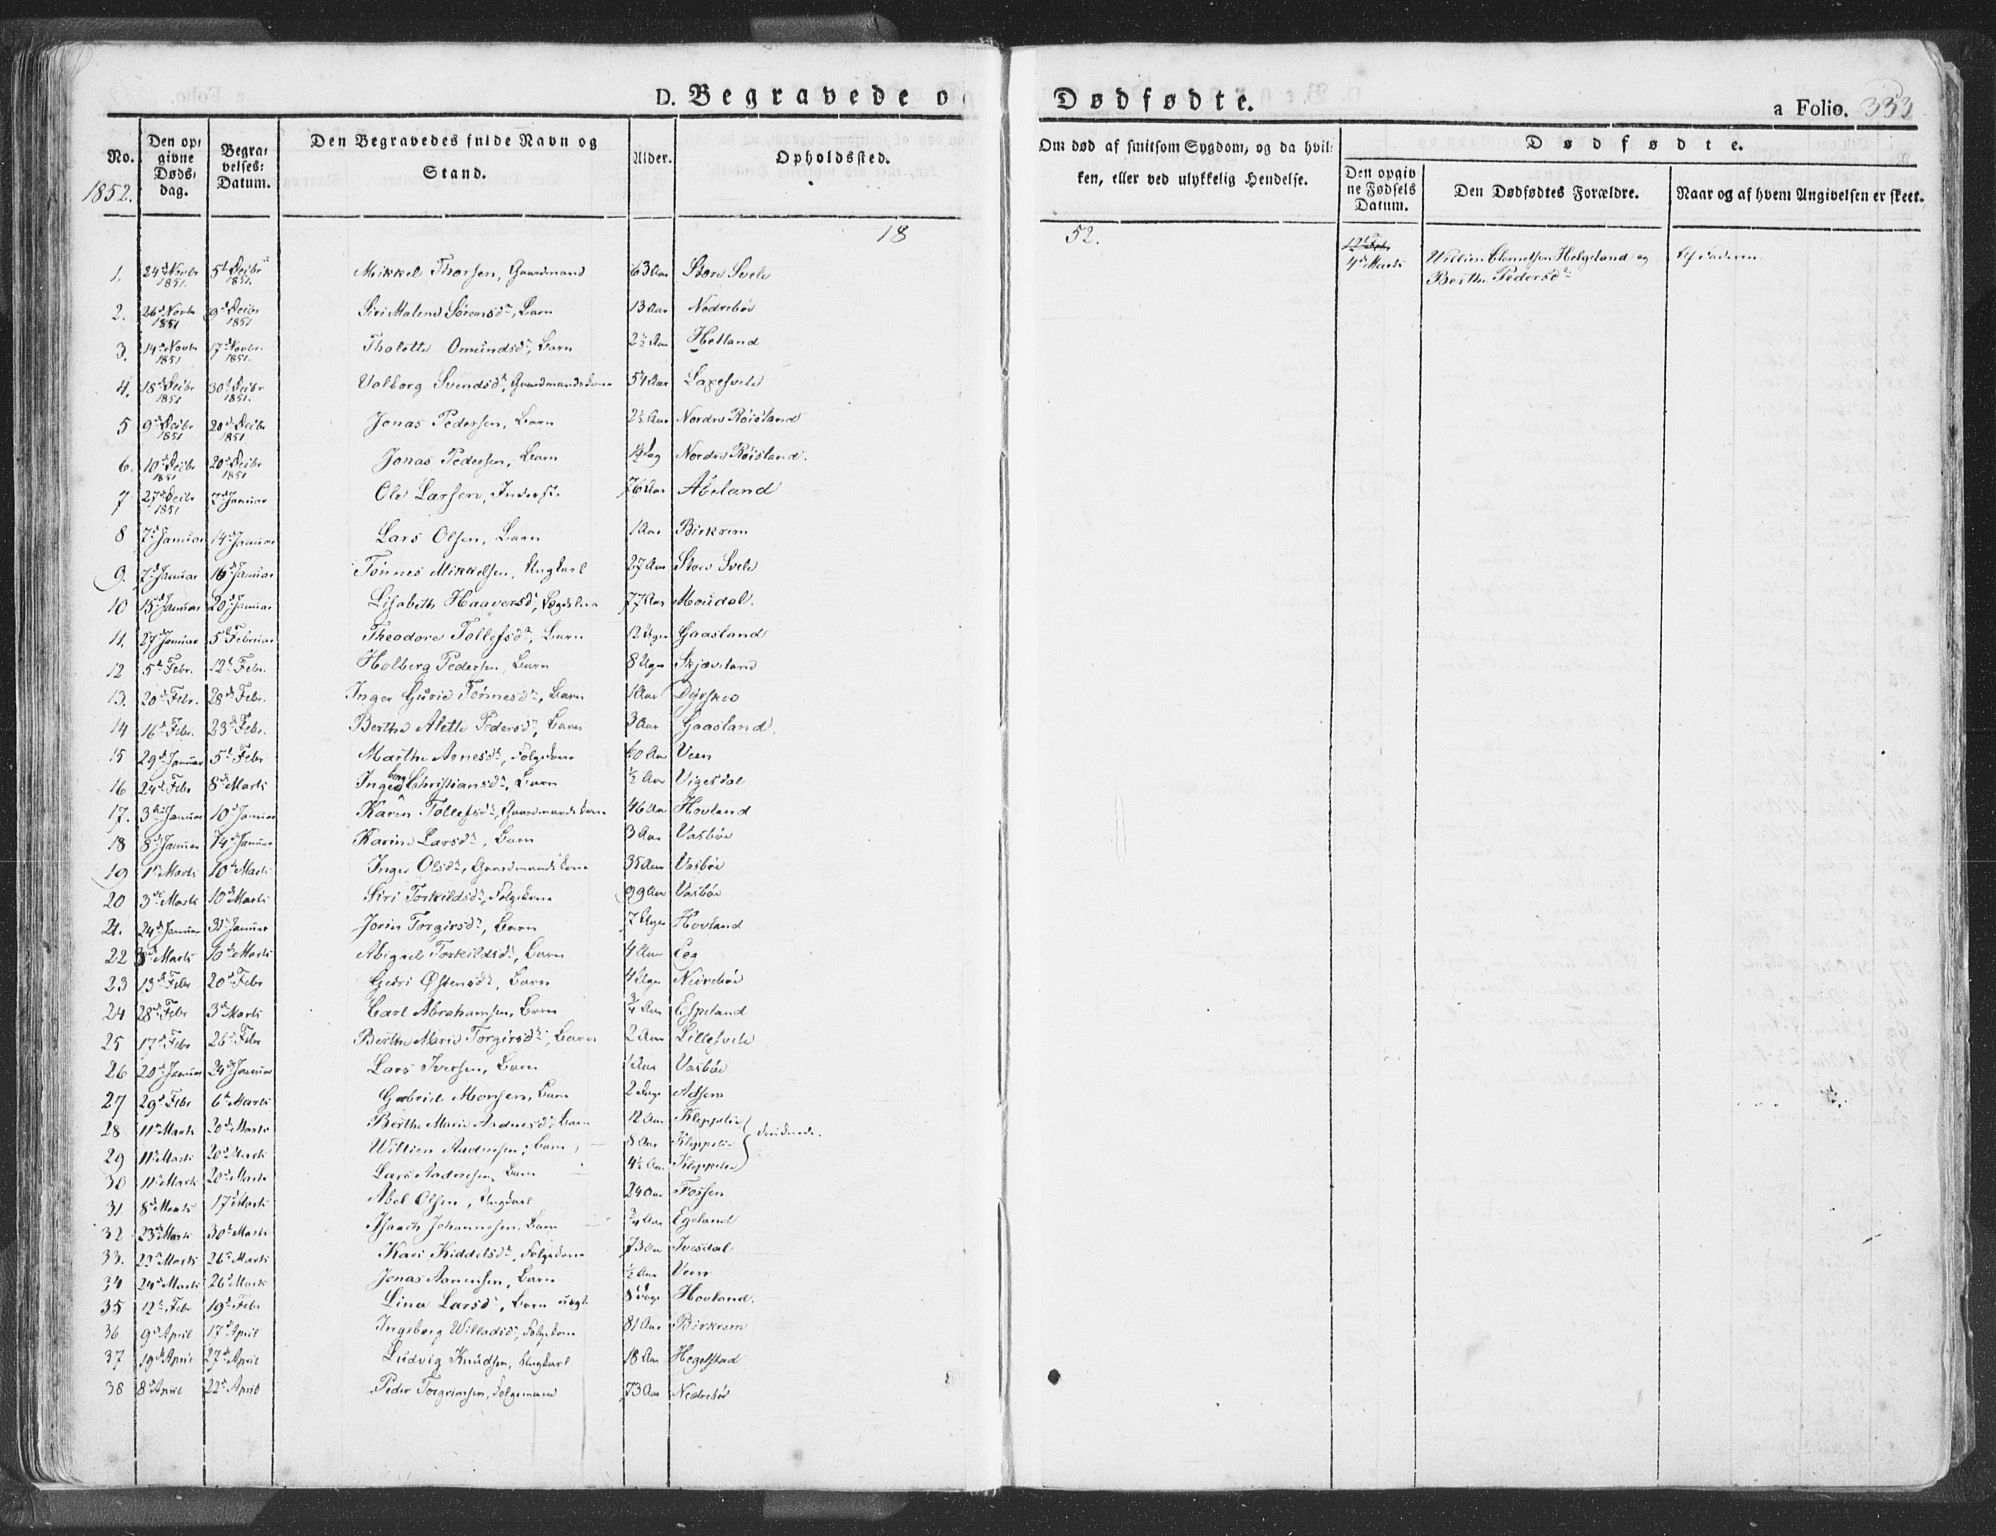 D. Begravede o
No.
Den op-
givne
Døds-
dag.
Begra-
velses-
Datum.
Den Begravedes fulde Navn og
Stand.
Alder.
Opholdssted.
1852.
18
1. 24d Novbr 1851 5t Decbr 1851. Mikkel Thorsen, Gaardmand 63 Aar Store Svele
2. 26d Novbr 1851 9d Decbr 1851 Siri Malene Sørensdr, Barn 13 Aar Nedrebø
3. 14d Novbr 1851 17d Novbr. 1851. Tholette Omundsdr, Barn 2½ Aar Hetland
4. 18d Decbr 1851 30d Decbr 1851. Valborg Svendsdr, Gaardmandskone 54 Aar Laxesvele
5 9d Decbr 1851 20d Decbr 1851 Jonas Pedersen, Barn 2½ Aar Nordre Røisland
6. 10d Decbr 1851 20d Decbr 1851 Jonas Pedersen, Barn Nordre Røisland.
7 27d Decbr 1851 2d Januar Ole Larsen, 76 Aar Abeland
8 7d Januar 14d Januar Lars Olsen, Barn 1 Aar Birkrem
9. 7d Januar 16d Januar Tønnes Mikkelsen, Ungkarl 27 Aar Store Svele
10 15d Januar 20d Januar Lisabeth Haaversdr, 77 Aar Moudal.
11. 27d Januar 5t Februar Theodore Tollefsdr, Barn 12 Uger Gaasland
12 5t Febr. 12t Febr. Holberg Pedersen, Barn 8 Uger Skjæveland
13. 20d Febr. 28d Febr. Inger Gurie Tønnesdr, Barn 1 Aar Dyrskog
14 16d Febr. 23d Febr. Berthe Alette Pedersdr, Barn 3 Aar Gaasland.
15 29d Januar 5t Febr Marthe Arnesdr, Folgekone 60 Aar Veen
16 24d Febr 8d Marts Ingeborg Christiansdr, Barn ½ Aar Vigesdal
17. 3die Januar 10d Januar Karen Tollefsdr, Gaardmandskone 46 Aar Hovland
18 8d Januar 14d Januar Karine Larsdr, Barn 3 Aar Vasbøe
19 1t Marts 10d Marts Inger Olsdr, Gaardmandskone 35 Aar Vasbøe
20 3d Marts 10d Marts Siri Torkildsdr, Folgekone 99 Aar Vasbøe
21. 24d Januar 31t Januar Jorin Torgirsdr, Barn 7 Uger Hovland
22 8d Marts 10d Marts Abigael Torkildsdr, Barn 4 Aar Eeg
23 13d Febr 20d Febr Guri Østensdr, Barn 4 Uger Nedrebø
24 28d Febr 3d Marts Carl Abrahamsen, Barn ¾ Aar Espeland
25 17d Febr 26d Febr Berthe Marie Torgirsdr, Barn 2 Aar Lillesvele
26 20d Januar 24d Januar Lars Iversen, Barn 1 Aar Vasbøe
27 29d Febr 6t Marts Gabriel Monsen, Barn 2 Dage
28 11t Marts 20d Marts Berthe Marie Aadnesdr, Barn 12 Aar Kleppelie
29 11t Marts 20d Marts Willien Aadnesen, Barn 8 Aar Kleppelie druknede.
30 11t Marts 20d Marts Lars Aadnesen, Barn 4½ Aar Kleppelie
31 8d Marts 17d Marts Abel Olsen, Ungkarl 24 Aar Fossen
32. 23d Marts 30d Marts Isaach Johannesen, Barn ¾ Aar Egeland
33. 22d Marts 26d Marts Kari Kiddelsdr, Folgekone 73 Aar Ivesdal
34 24d Marts 26d Marts Jonas Aanensen, Barn ½ Aar Veen
35 12t Febr 19d Febr Lina Larsdr, Barn uægte 8 Dage Hovland.
36 9d April 17d April Ingeborg Willadsdr, Folgekone 81 Aar Birkrem
37 19d April 27d April Ludvig Knudsen, Ungkarl 18 Aar Hegelstad
38 8d April 22d April Peder Torgrimsen, Folgemand 73 Aar Nedrebø
Dødfødte.
a Folio. 333
Om død af smitsom Sygdom, og da hvil-
ken, eller ved ulykkelig Hendelse.
Dødfødte.
Den opgiv
ne Fødsels
Datum.
Den Dødfødtes Forældre.
Naar og af hvem Angivelsen er skeet.
52.
4d Marts Willien Clemetsen Helgeland og Af Faderen.
Berthe Pedersdr